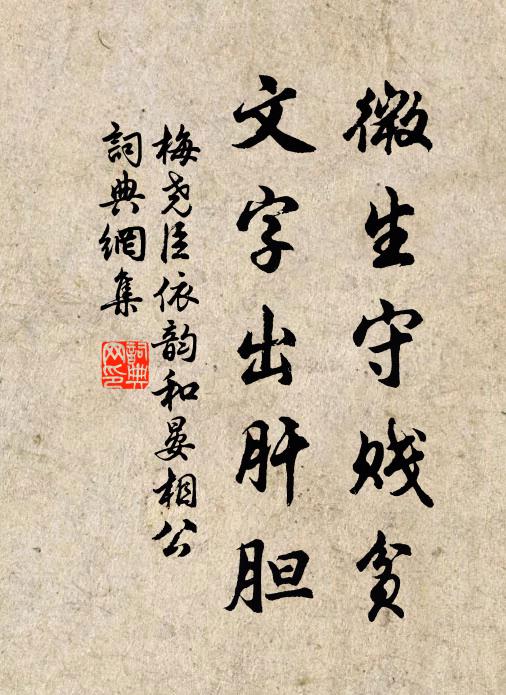 微生守贱贫
文字出肝胆
梅尧臣依韵和晏相公
詞典網集
詞典网印